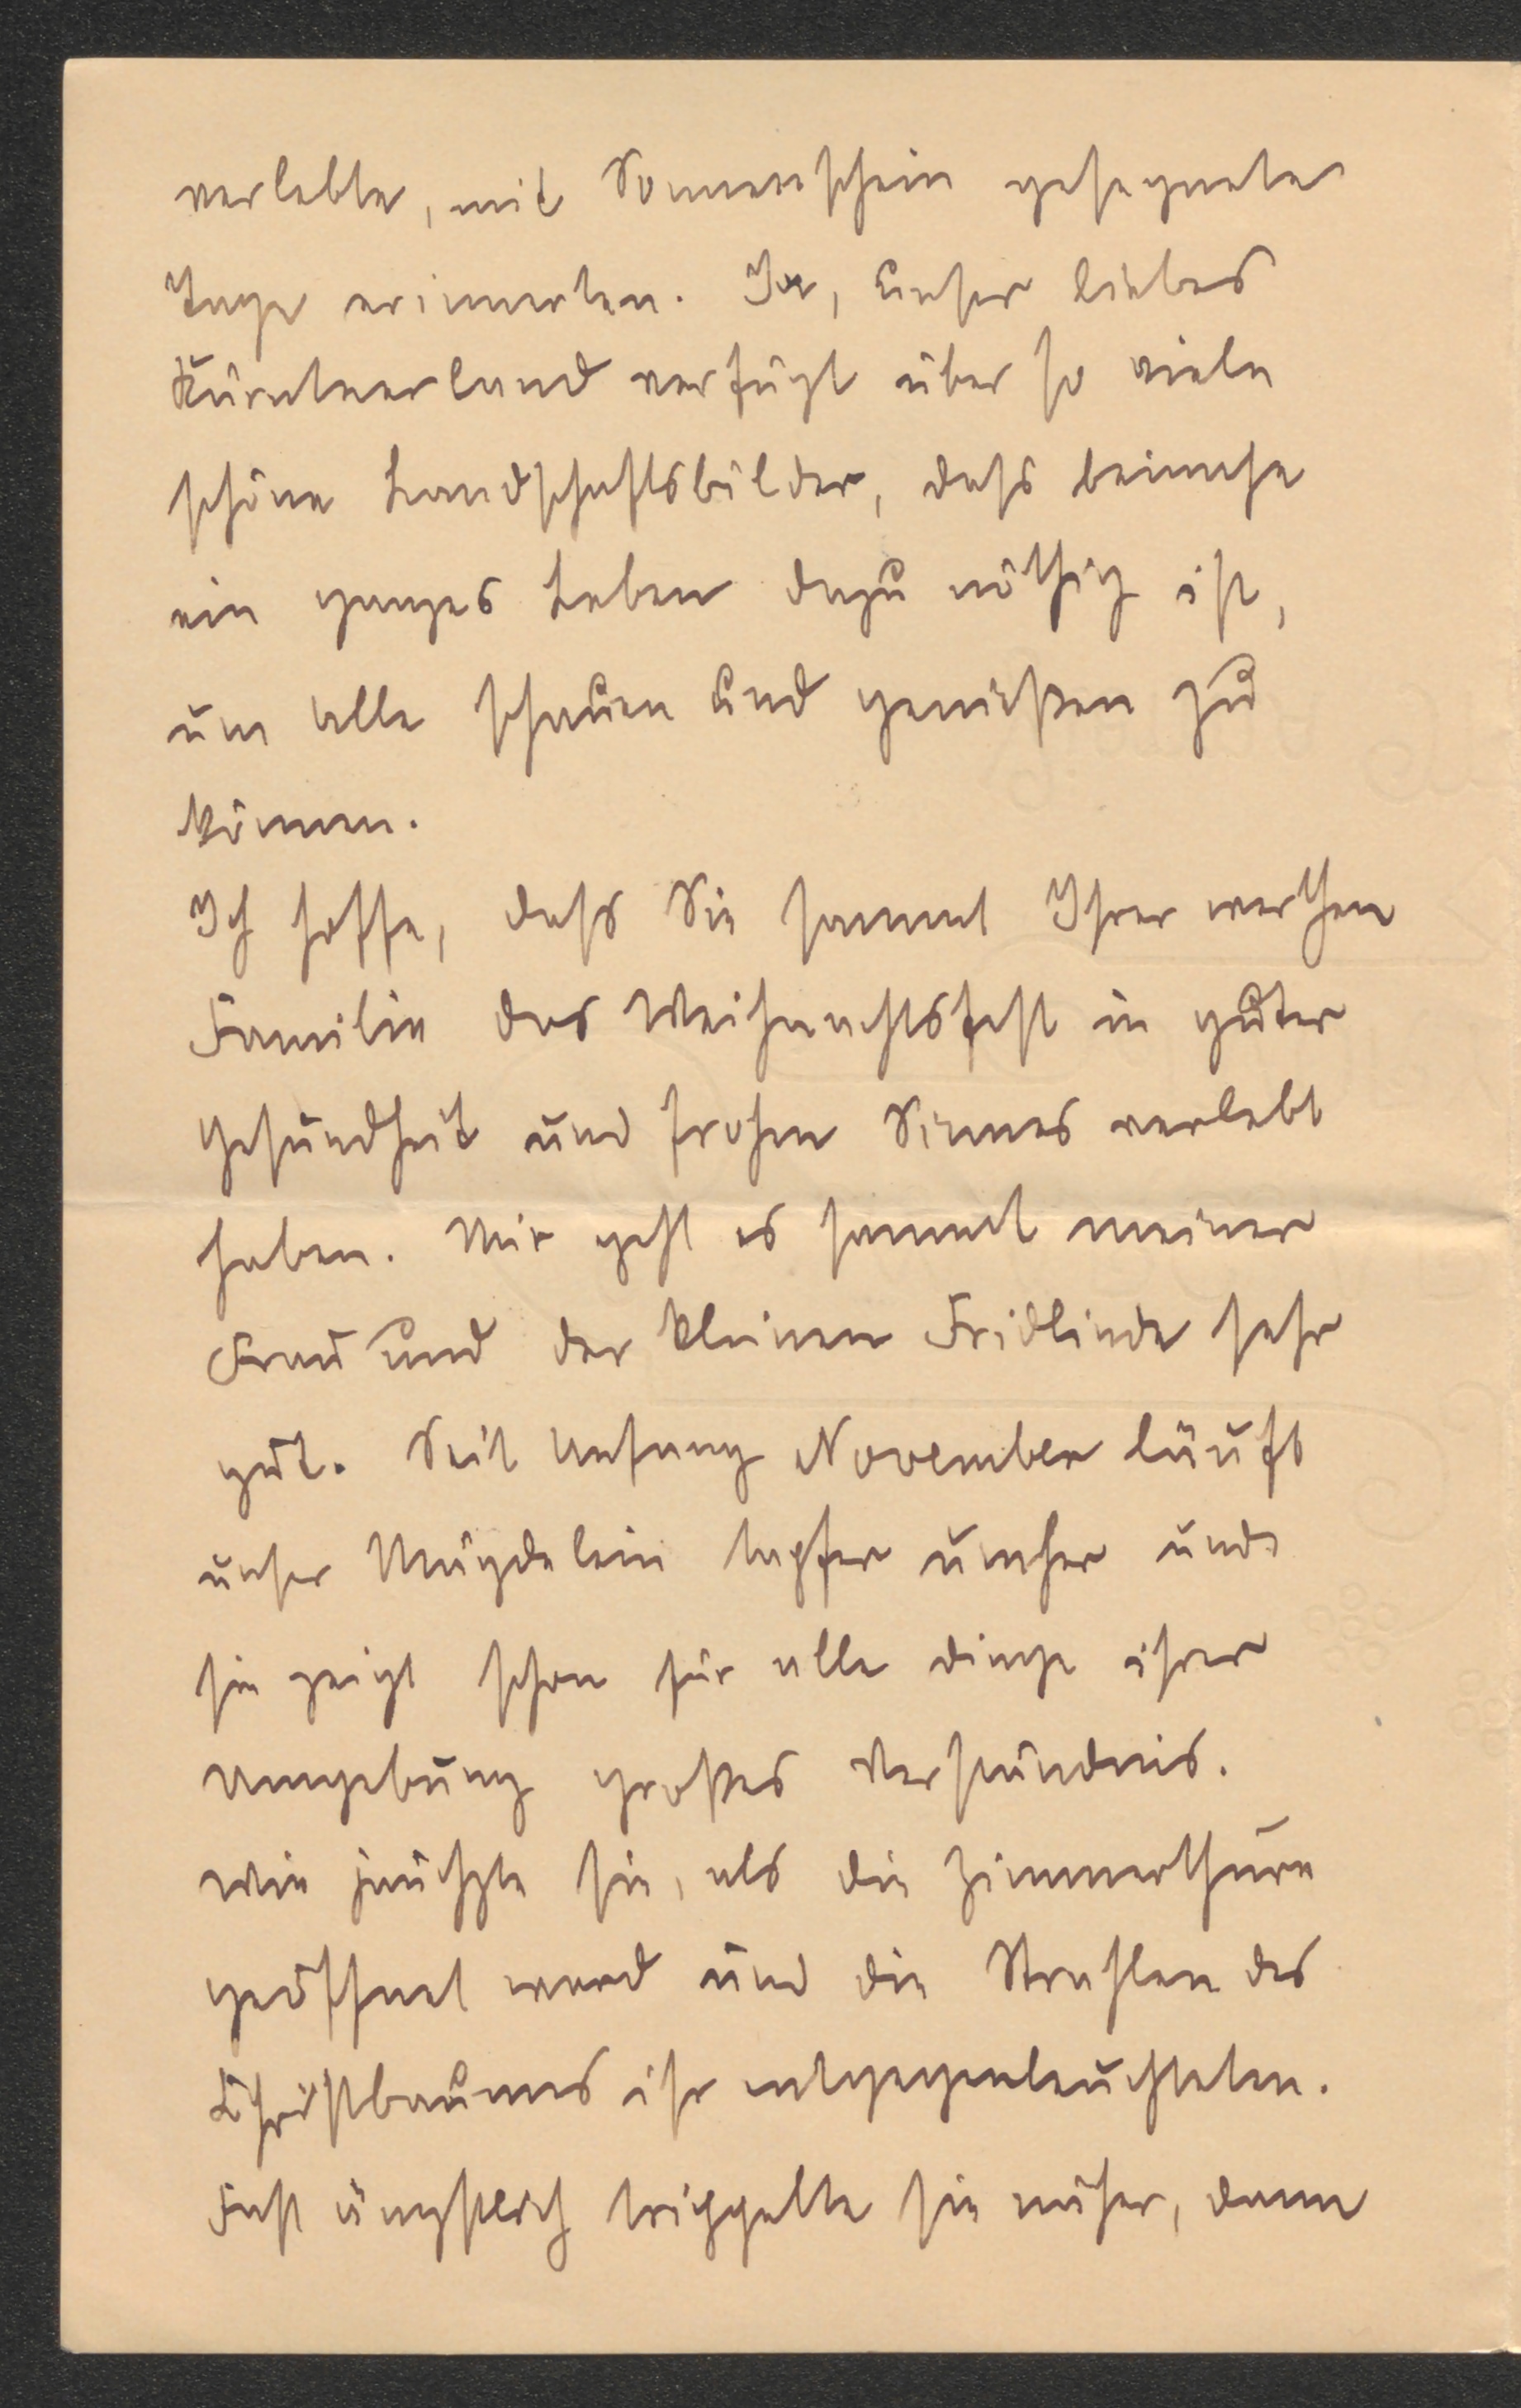 verlebte, mit Sonnenschein gesegnete
Tage erinnerten. Ja, unser liebes
Kärntnerland verfügt über so viele
schöne Landschaftsbilder, dass beinahe
ein ganzes Leben dazu nöthig ist,
um alle schauen und genießen zu
können.
Ich hoffe, dass Sie sammt Ihrer werthen
Familie das Weihnachtsfest in guter
Gesundheit und frohen Sinnes verlebt
haben. Mir geht es sammt meiner
Frau und der kleinen Fridlinde sehr
gut. Seit Anfang November läuft
unser Mägdelein tapfer umher und
sie zeigt schon für alle Dinge ihrer
Umgebung großes Verständnis.
Wie jauchzte sie, als die Zimmerthüre
geöffnet ward und die Strahlen des
Christbaumes ihr entgegenleuchteten.
Fast ängstlich trippelte sie näher, dann